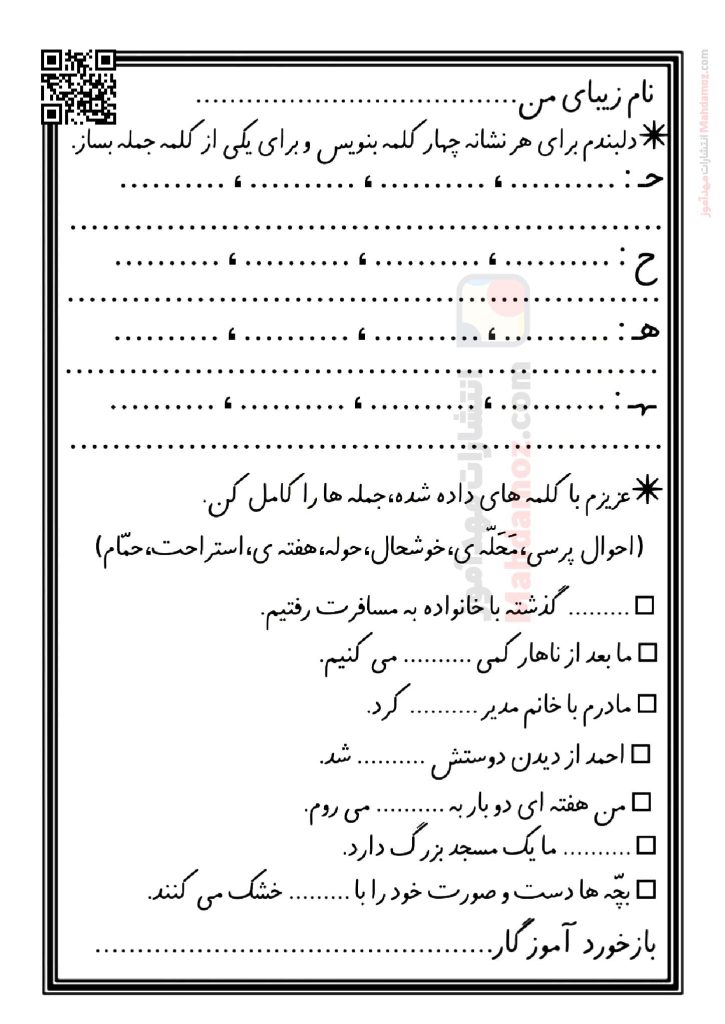 نام زیبای من......................................
دلبندم برای هر نشانه چهار کلمه بنویس و برای یکی از کلمه جمله بساز.
حـ : .......... ، .......... ، .......... ، ..........
..........................................................
ح : .......... ، .......... ، .......... ، ..........
..........................................................
هـ : .......... ، .......... ، .......... ، ..........
..........................................................
ـهـ : .......... ، .......... ، .......... ، ..........
..........................................................
عزیزم با کلمه های داده شده،جمله ها را کامل کن.
(احوال پرسی،مَحَلّه ی،خوشحال،حوله،هفته ی،استراحت،حمّام)
......... گذشته با خانواده به مسافرت رفتیم.
ما بعد از ناهار کمی .......... می کنیم.
مادرم با خانم مدیر .......... کرد.
احمد از دیدن دوستش .......... شد.
من هفته ای دو بار به .......... می روم.
.......... ما یک مسجد بزرگ دارد.
بچّه ها دست و صورت خود را با ......... خشک می کنند.
بازخورد آموزگار.............................................
انتشارات مهدآموز Mahdamoz.com
انتشارات مهدآموز
Mahdamoz.com